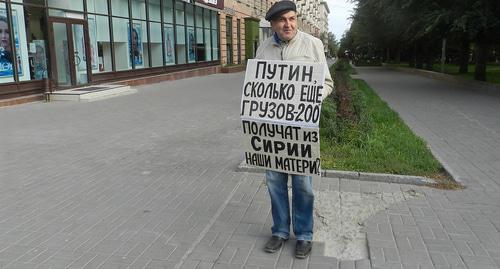 ПУТИН,
СКОЛЬКО ЕЩЕ
ГРУЗОВ-200
ПОЛУЧАТ ИЗ
СИРИИ
НАШИ МАТЕРИ?